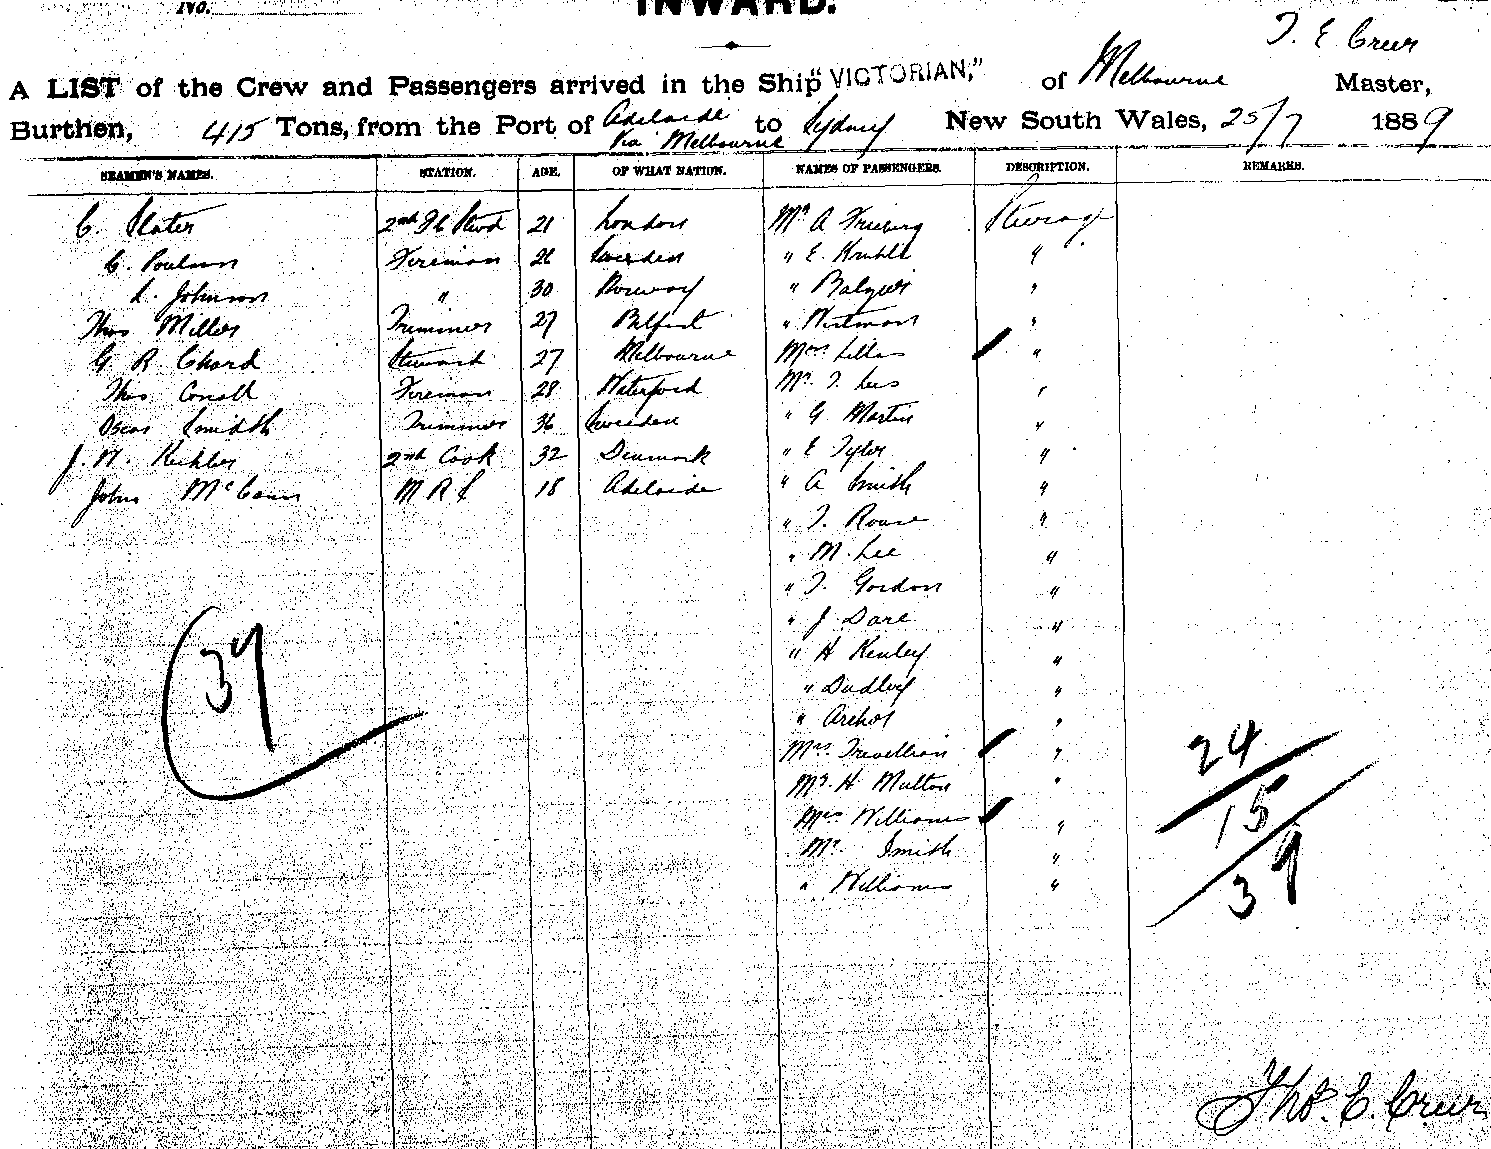 No.
INWARD.
T. E. Creer
A LIST of the Crew and Passengers arrived in the Ship "VICTORIAN," of Melbourne Master,
Burthen, 415 Tons, from the Port of Adelaide via Melbourne to Sydney New South Wales, 25/7 1889
SEAMEN'S NAMES. STATION. AGE. OF WHAT NATION. NAMES OF PASSENGERS. DESCRIPTION. REMARKS.
C. Slater 2nd Stwd 21 London Mr A Steerage
C. Poulsen Fireman 26 Sweden " E.  "
L. Johnson " 30 Norway "  "
Thos Miller Trimmer 27 Belfast "  "
G R Chard Steward 27 Melbourne Mrs "
Thos Fireman 28 Waterford Mr. T. "
Oscar Smidth Trimmer 36 Sweden " G Martin "
J. W. 2nd Cook 32 Denmark " E Tyler "
John McCann M R S 18 Adelaide " A Smith "
" T. Rouse "
" M. Lee "
" T. Gordon "
" J Dare "
" H Kenley "
" Dudley "
" "
Mrs. Trevellian "
Mr. H Multon "
Mrs Williams "
Mr. Smith "
" Williams "
39
24
15
39
Thos. E. Creer